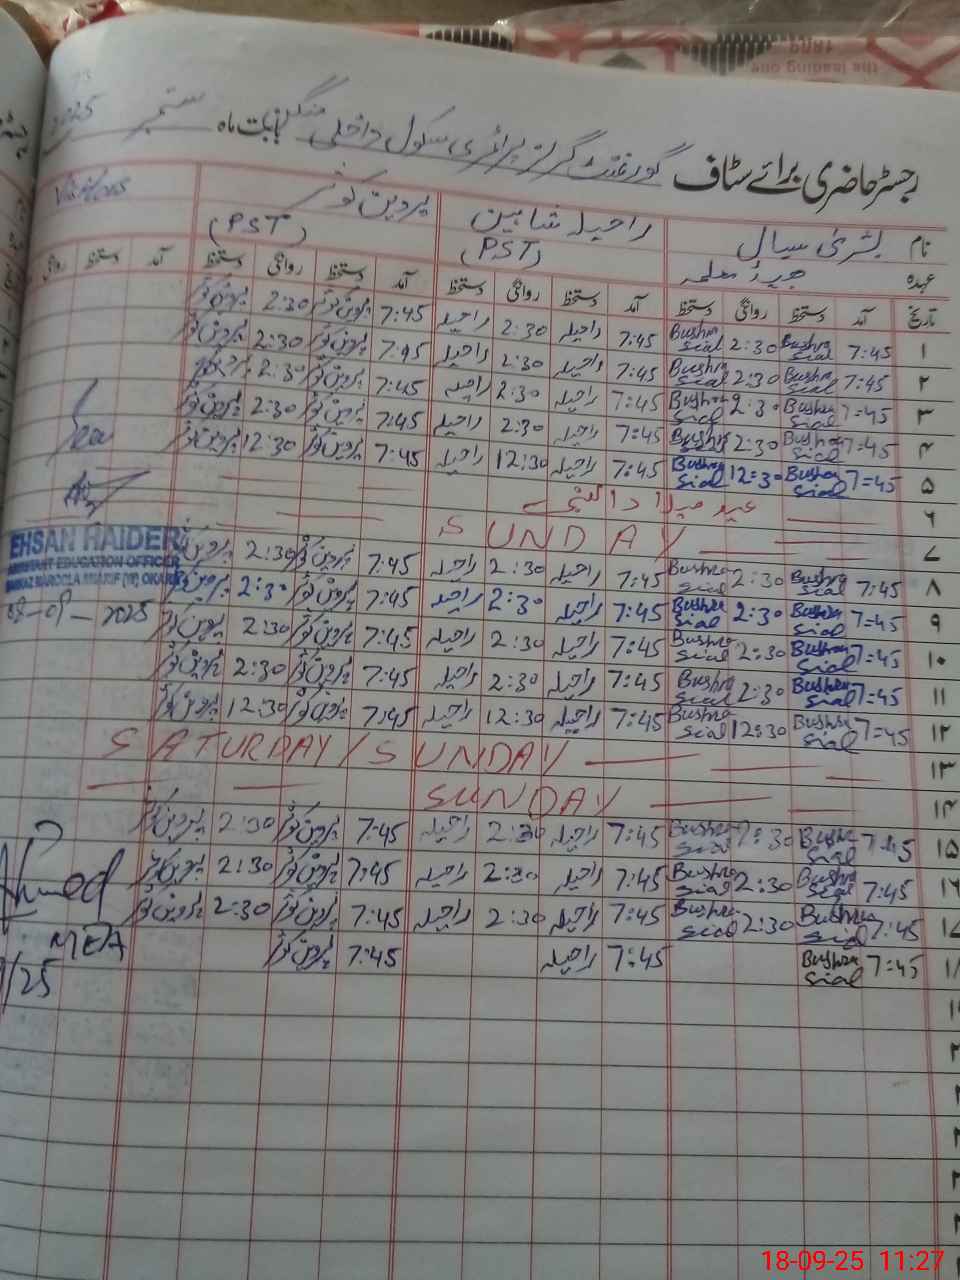 the leading one
رجسٹر حاضری برائے سٹاف گورنمنٹ گرلز پرائمری سکول داخلی بابت ماہ ستمبر 2025
نام بشریٰ سیال راحیلہ شاہین پروین کوثر
عہدہ ہیڈ معلمہ (PST) (PST)
تاریخ آمد دستخط روانگی دستخط آمد دستخط روانگی دستخط آمد دستخط روانگی دستخط آمد دستخط روانگی
۱ 7:45 Bushra Sial 2:30 Bushra Sial 7:45 راحیلہ 2:30 راحیلہ 7:45 پروین کوثر 2:30 پروین کوثر
۲ 7:45 Bushra Sial 2:30 Bushra Sial 7:45 راحیلہ 2:30 راحیلہ 7:45 پروین کوثر 2:30 پروین کوثر
۳ 7=45 Bushra Sial 2:30 Bushra Sial 7:45 راحیلہ 2:30 راحیلہ 7:45 پروین کوثر 2:30 پروین کوثر
۴ 7=45 Bushra Sial 2:30 Bushra Sial 7:45 راحیلہ 2:30 راحیلہ 7:45 پروین کوثر 2:30 پروین کوثر
۵ 7=45 Bushra Sial 12:30 Bushra Sial 7:45 راحیلہ 12:30 راحیلہ 7:45 پروین کوثر 12:30 پروین کوثر
۶ عید میلاد النبی
۷ SUNDAY
۸ 7:45 Bushra Sial 2:30 Bushra Sial 7:45 راحیلہ 2:30 راحیلہ 7:45 پروین کوثر 2:30 پروین کوثر
۹ 7=45 Bushra Sial 2:30 Bushra Sial 7:45 راحیلہ 2:30 راحیلہ 7:45 پروین کوثر 2:30 پروین کوثر
۱۰ 7=45 Bushra Sial 2:30 Bushra Sial 7:45 راحیلہ 2:30 راحیلہ 7:45 پروین کوثر 2:30 پروین کوثر
۱۱ 7=45 Bushra Sial 2:30 Bushra Sial 7:45 راحیلہ 2:30 راحیلہ 7:45 پروین کوثر 2:30 پروین کوثر
۱۲ 7=45 Bushra Sial 12:30 Bushra Sial 7:45 راحیلہ 12:30 راحیلہ 7:45 پروین کوثر 12:30 پروین کوثر
۱۳ SATURDAY/SUNDAY
۱۴ SUNDAY
۱۵ 7:45 Bushra Sial 2:30 Bushra Sial 7:45 راحیلہ 2:30 راحیلہ 7:45 پروین کوثر 2:30 پروین کوثر
۱۶ 7:45 Bushra Sial 2:30 Bushra Sial 7:45 راحیلہ 2:30 راحیلہ 7:45 پروین کوثر 2:30 پروین کوثر
۱۷ 7:45 Bushra Sial 2:30 Bushra Sial 7:45 راحیلہ 2:30 راحیلہ 7:45 پروین کوثر 2:30 پروین کوثر
۱۸ 7=45 Bushra Sial 7:45 راحیلہ 7:45 پروین کوثر
EHSAN HAIDER
ASSISTANT EDUCATION OFFICER
08-09-2025
Ahmed
MEA
/25
18-09-25 11:27